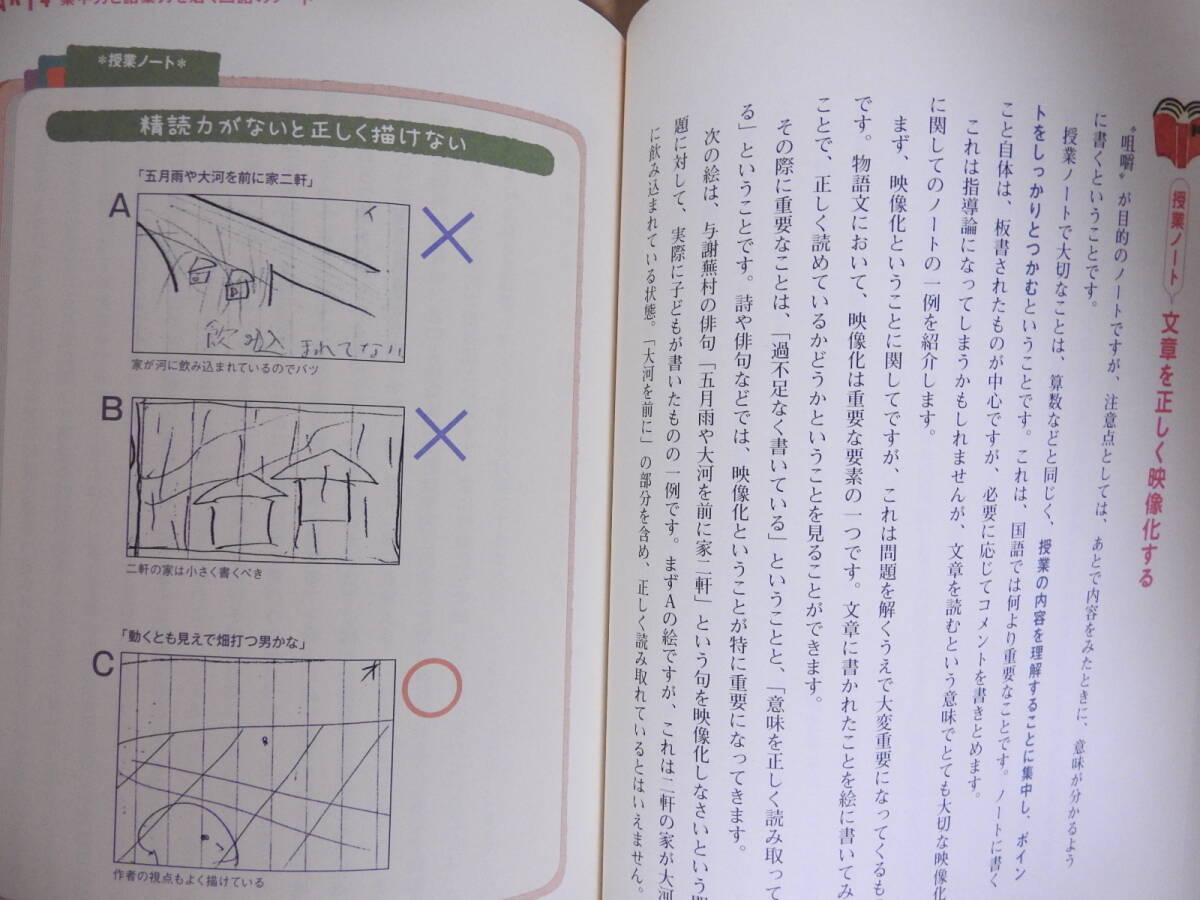 授業ノート
文章を正しく映像化する
〝咀嚼〟が目的のノートですが、注意点としては、あとで内容をみたときに、意味が分かるよう
に書くということです。
授業ノートで大切なことは、算数などと同じく、授業の内容を理解することに集中し、ポイン
トをしっかりとつかむということです。これは、国語では何より重要なことです。ノートに書く
こと自体は、板書されたものが中心ですが、必要に応じてコメントを書きとめます。
これは指導論になってしまうかもしれませんが、文章を読むという意味でとても大切な映像化
に関してのノートの一例を紹介します。
まず、映像化ということに関してですが、これは問題を解くうえで大変重要になってくるも
です。物語文において、映像化は重要な要素の一つです。文章に書かれたことを絵に書いてみ
ことで、正しく読めているかどうかということを見ることができます。
その際に重要なことは、「過不足なく書いている」ということと、「意味を正しく読み取って
る」ということです。詩や俳句などでは、映像化ということが特に重要になってきます。
次の絵は、与謝蕪村の俳句「五月雨や大河を前に家二軒」という句を映像化しなさいという
題に対して、実際に子どもが書いたものの一例です。まずAの絵ですが、これは二軒の家が大河
に飲み込まれている状態。「大河を前に」の部分を含め、正しく読み取れているとはいえません。
*授業ノート*
精読力がないと正しく描けない
「五月雨や大河を前に家二軒」
A
イ
飲み込まれてない
家が河に飲み込まれているのでバツ
B
二軒の家は小さく書くべき
「動くとも見えで畑打つ男かな」
C
オ
作者の視点もよく描けている